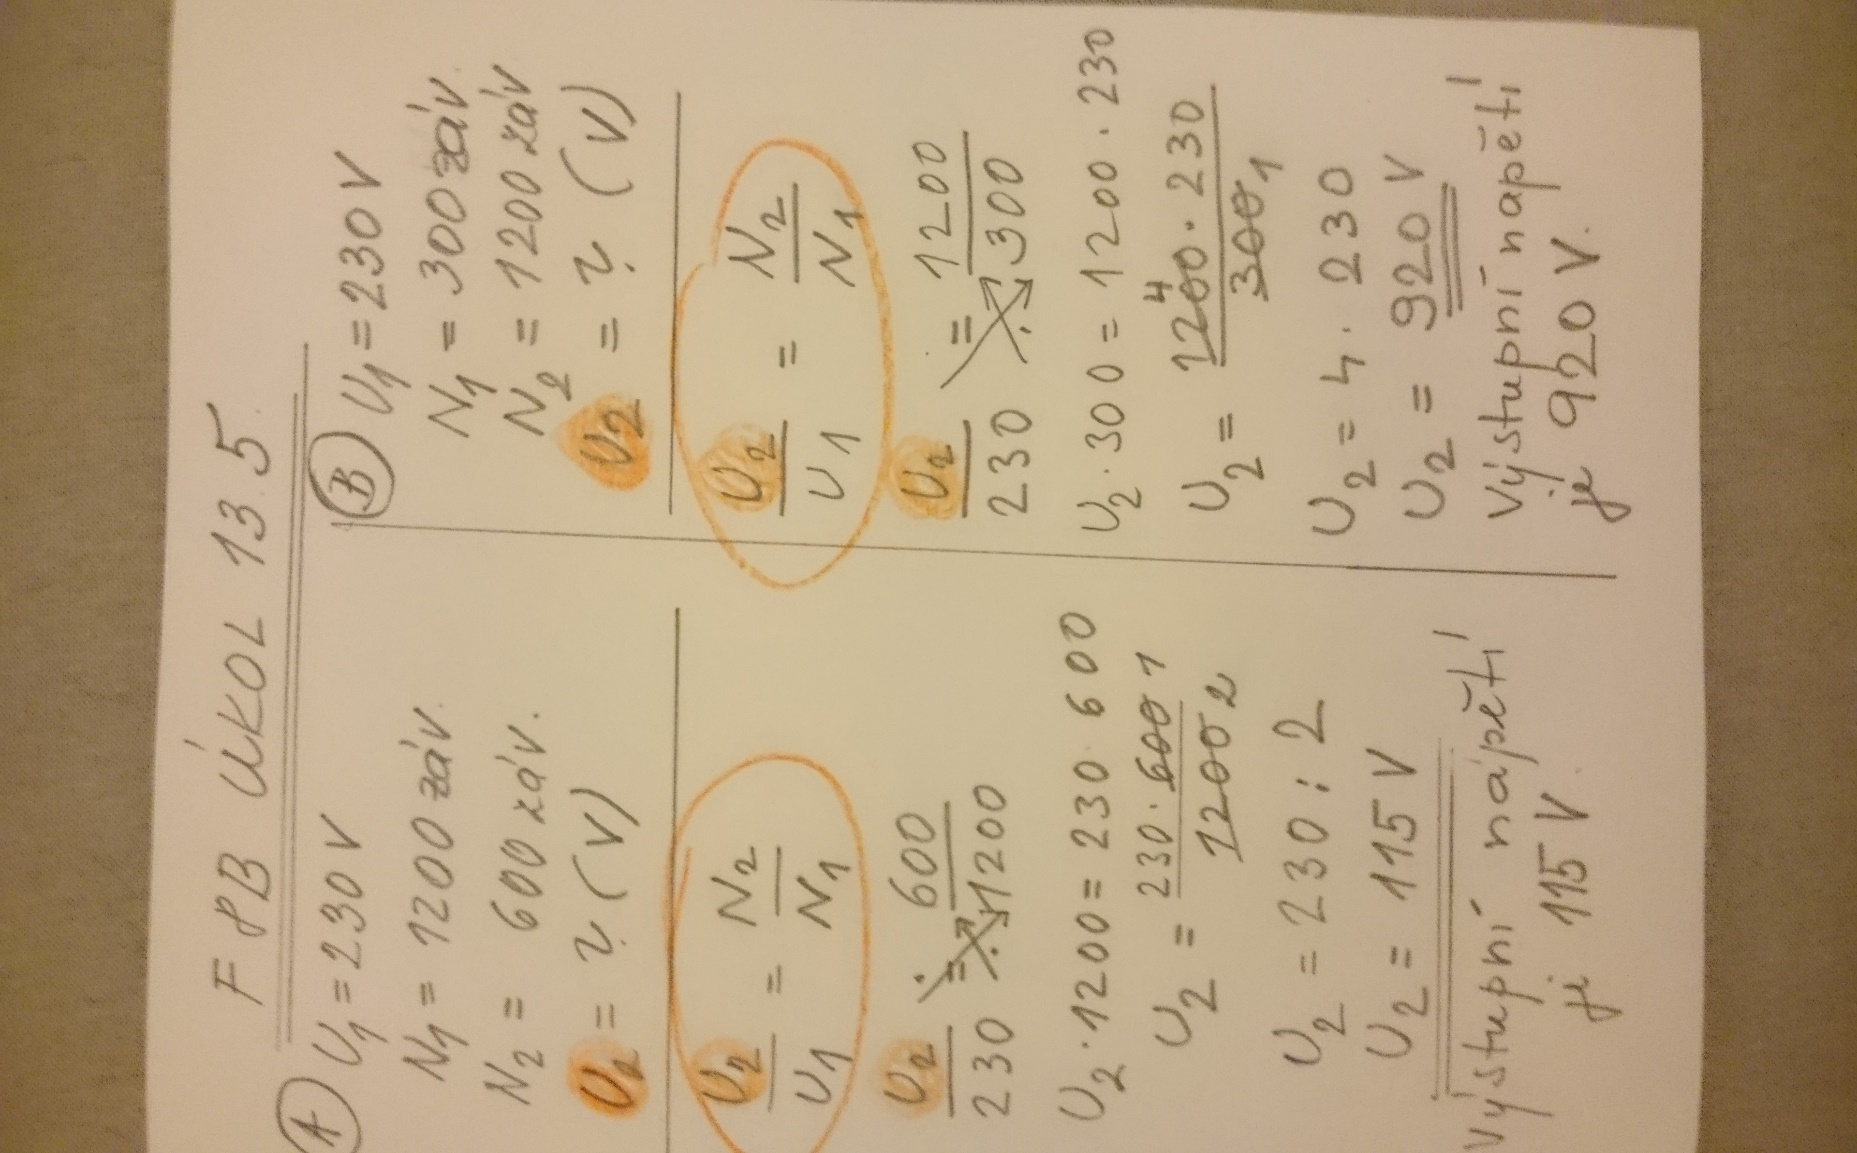 F 8B ÚKOL 13.5
A
U1 = 230 V
N1 = 1200 záv.
N2 = 600 záv.
U2 = ? (V)
U2/U1 = N2/N1
U2/230 = 600/1200
U2 · 1200 = 230 · 600
U2 = 230 · 600 1/1200 2
U2 = 230 : 2
U2 = 115 V
Výstupní nápětí
je 115 V.
B
U1 = 230 V
N1 = 300 záv.
N2 = 1200 záv.
U2 = ? (V)
U2/U1 = N2/N1
U2/230 = 1200/300
U2 · 300 = 1200 · 230
U2 = 4 1200 · 230/300 1
U2 = 4 · 230
U2 = 920 V
Výstupní napětí
je 920 V.